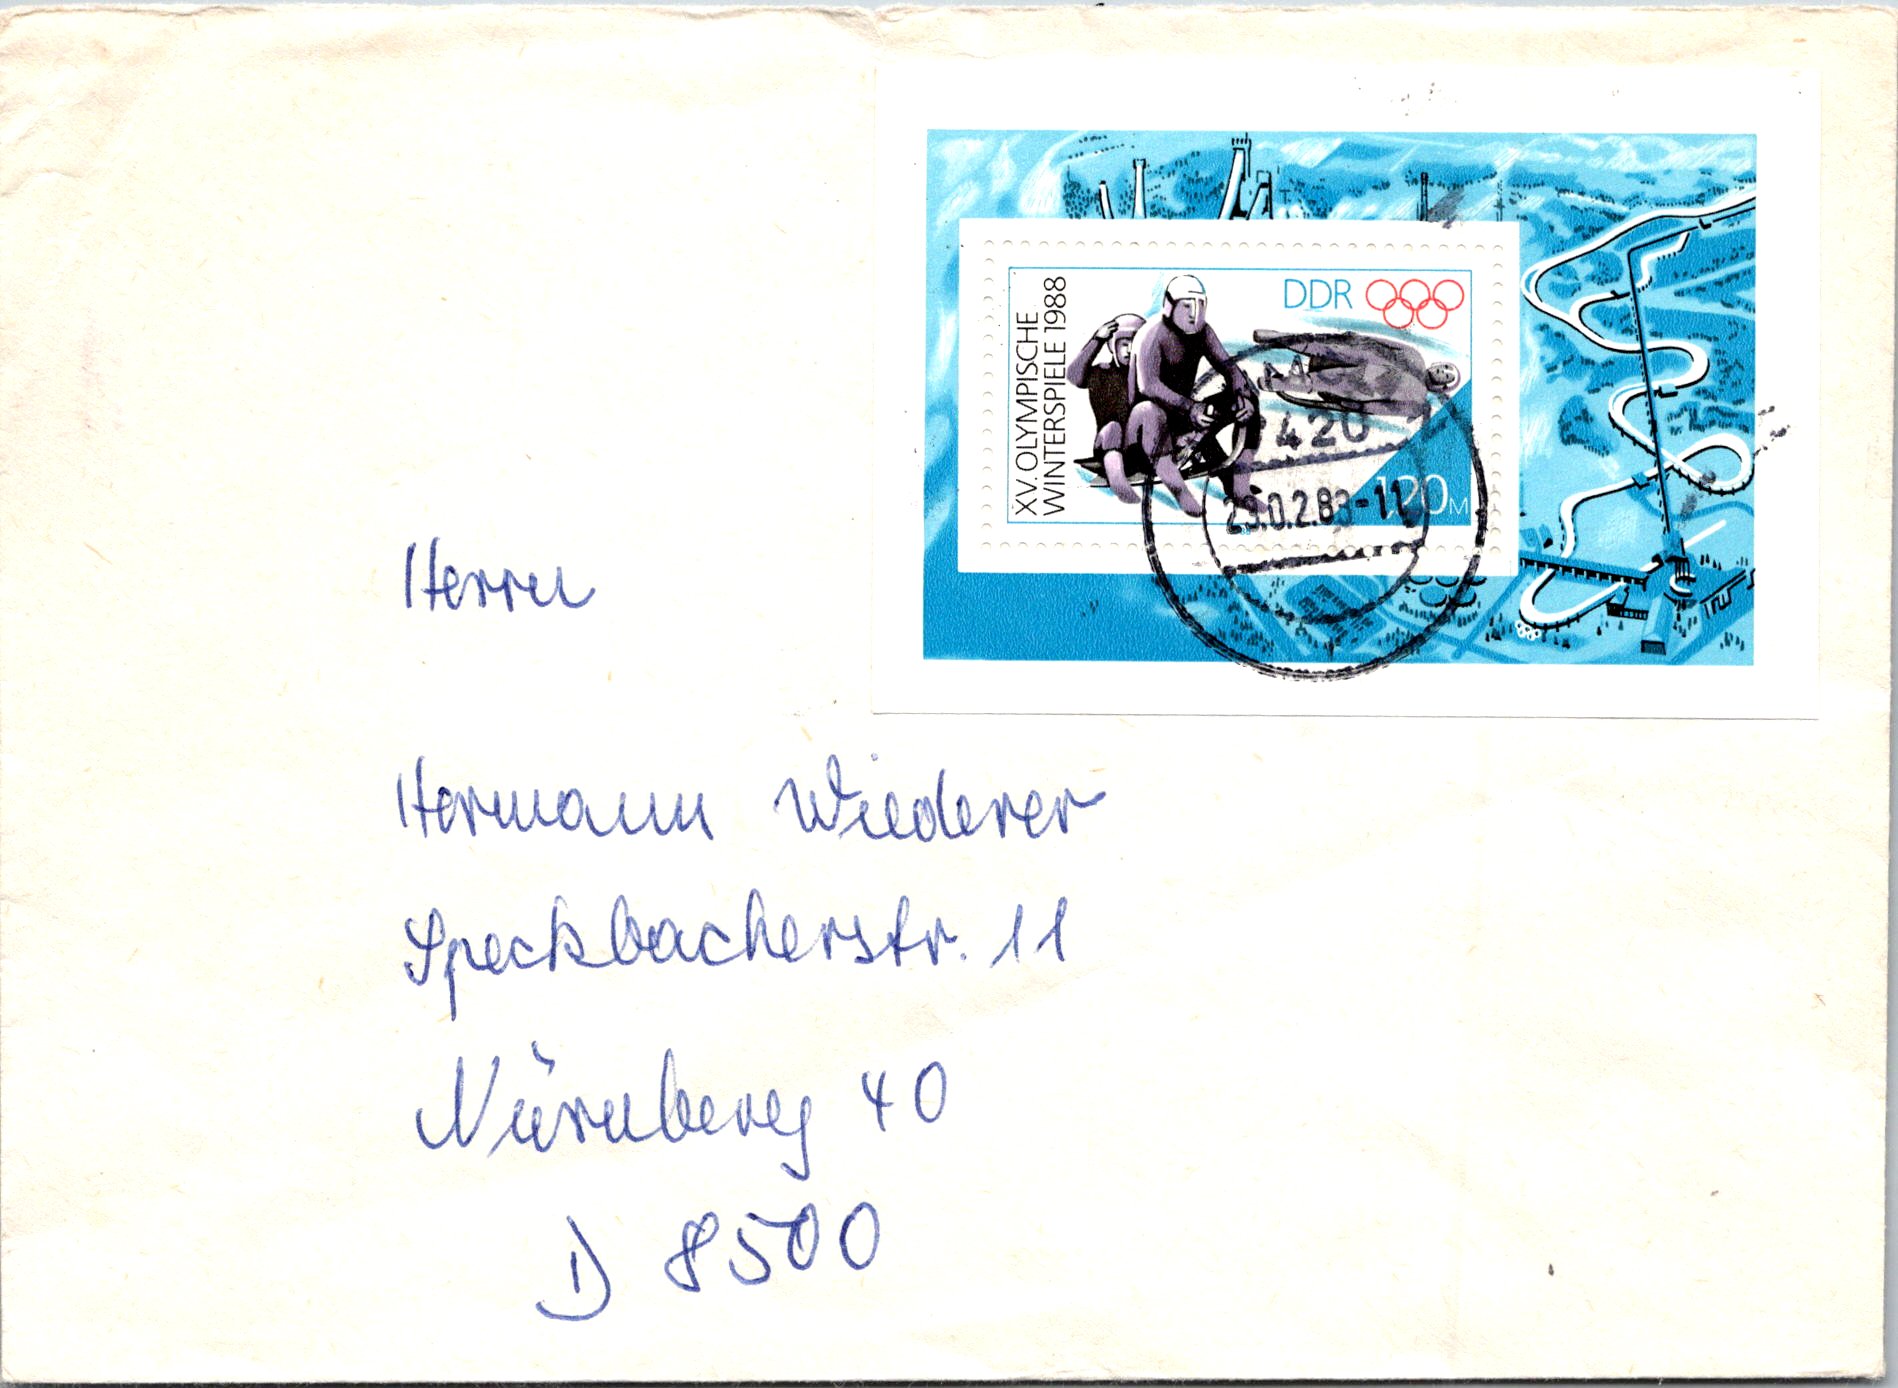 XV. OLYMPISCHE
WINTERSPIELE 1988
DDR
1,20 M
420
29.02.88-11
Herrn
Hermann Wiederer
Speckbacherstr. 11
Nürnberg 40
D 8500